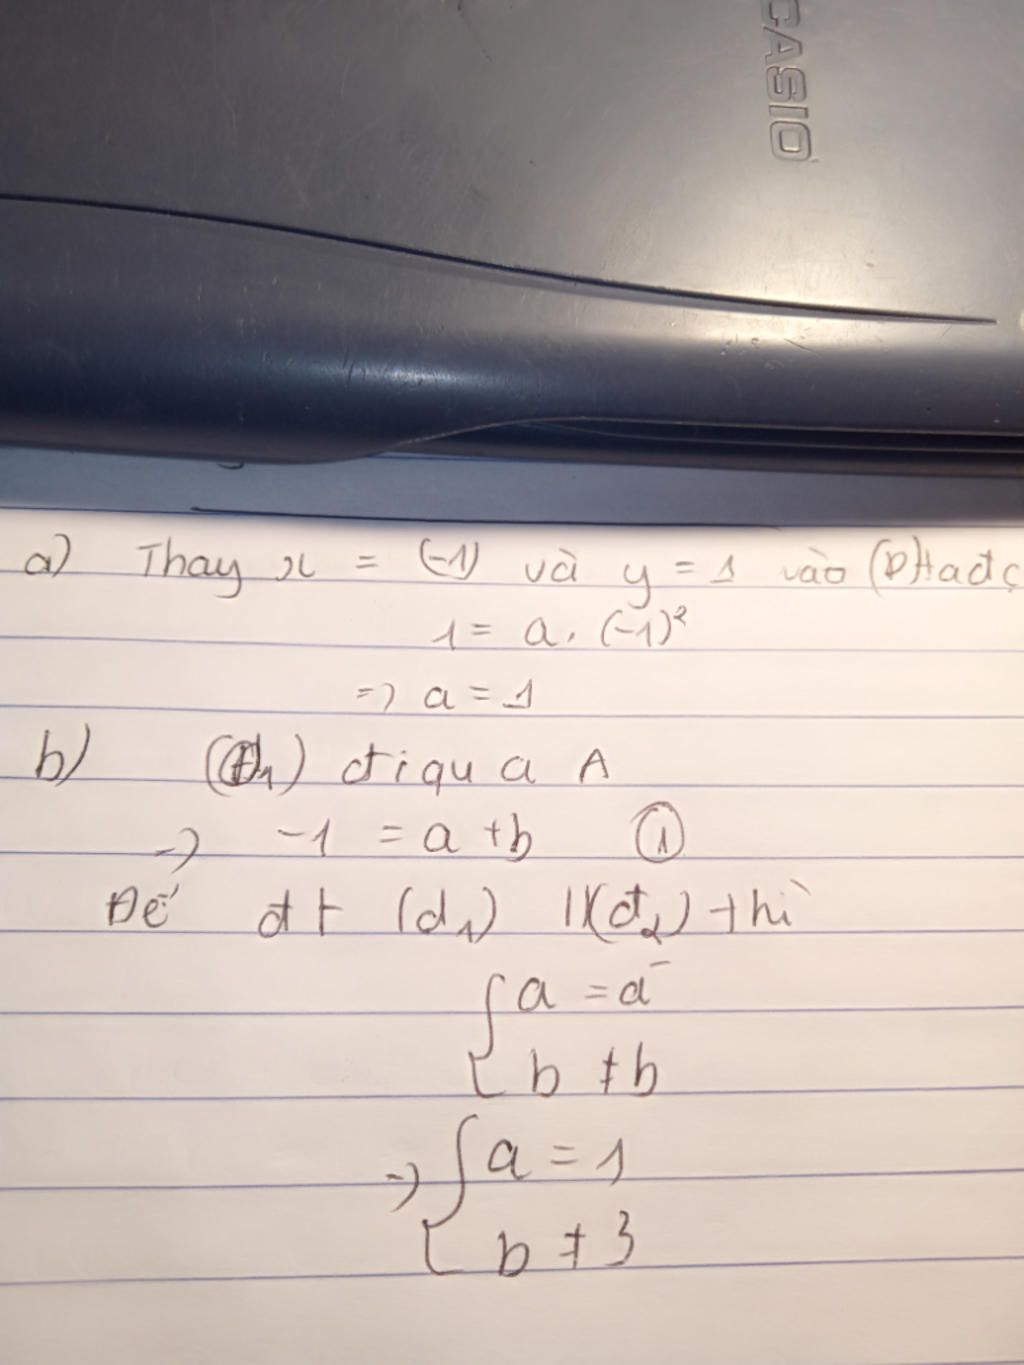 CASIO
a) Thay x = (-1) và y = 1 vào (P) ta đc
1 = a. (-1)²
=> a = 1
b) (d₁) đi qua A
=> -1 = a + b ①
Để đt (d₁) // (d₂) thì
{ a = a'
b ≠ b
=> { a = 1
b ≠ 3